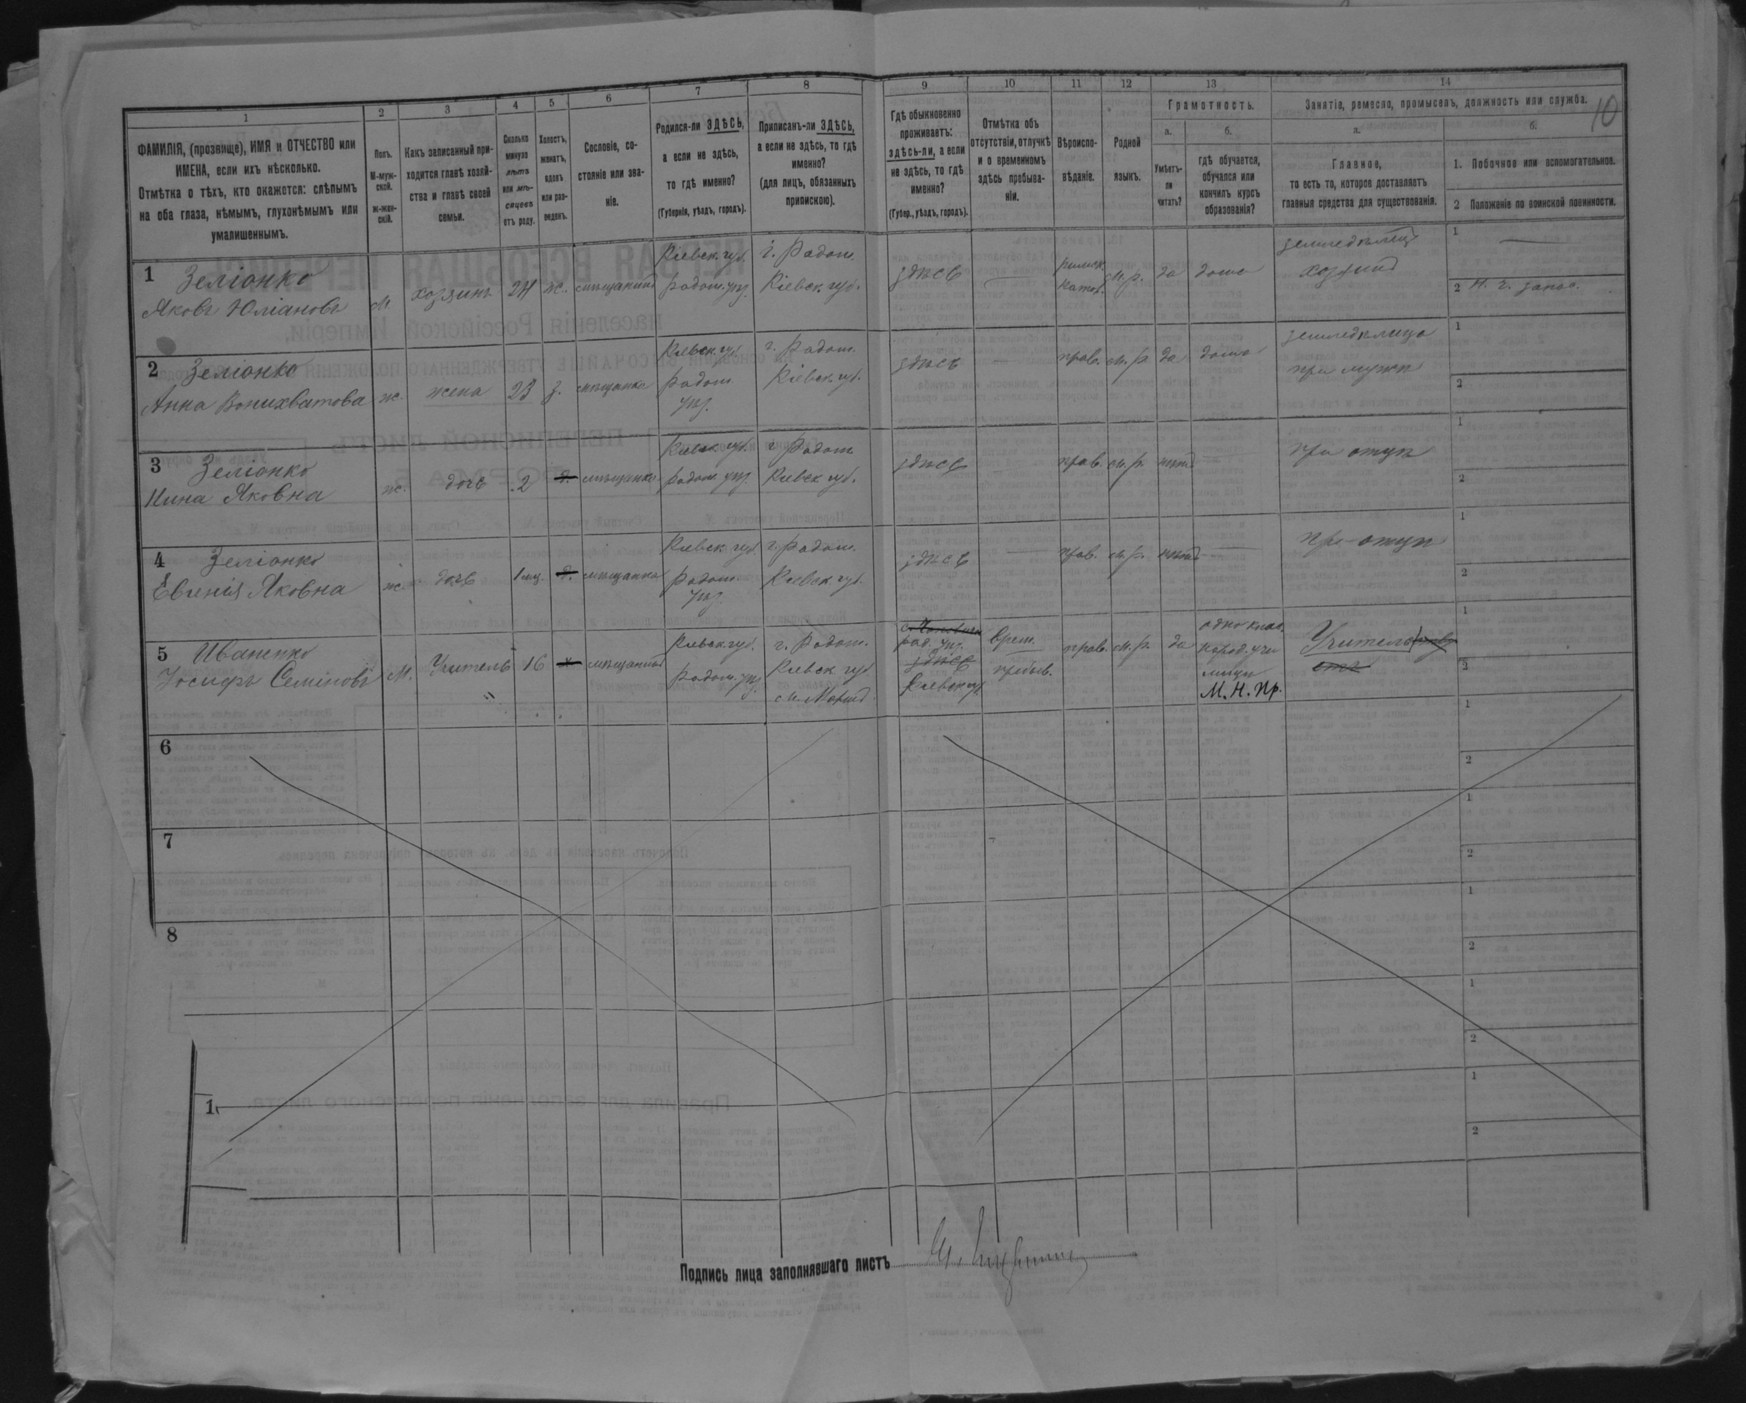 10
1 2 3 4 5 6 7 8 9 10 11 12 13 14
ФАМИЛІЯ, (прозвище), ИМЯ и ОТЧЕСТВО или
ИМЕНА, если ихъ нѣсколько.
Отмѣтка о тѣхъ, кто окажется: слѣпымъ
на оба глаза, нѣмымъ, глухонѣмымъ или
умалишеннымъ.
Полъ.
М-муж-
ской.
ж-жен-
скій.
Какъ записанный при-
ходится главѣ хозяй-
ства и главѣ своей
семьи.
Сколько
минуло
лѣтъ
или мѣ-
сяцевъ
отъ роду.
Холостъ,
женатъ,
вдовъ
или раз-
веденъ.
Сословіе, со-
стояніе или зва-
ніе.
Родился-ли ЗДѢСЬ,
а если не здѣсь,
то гдѣ именно?
(Губернія, уѣздъ, городъ).
Приписанъ-ли ЗДѢСЬ,
а если не здѣсь, то гдѣ
именно?
(для лицъ, обязанныхъ
припискою).
Гдѣ обыкновенно
проживаетъ:
здѣсь-ли, а если
не здѣсь, то гдѣ
именно?
(Губер., уѣздъ, городъ).
Отмѣтка объ
отсутствіи, отлучкѣ
и о временномъ
здѣсь пребыва-
ніи.
Вѣроиспо-
вѣданіе.
Родной
языкъ.
Грамотность.
а.
Умѣетъ-
ли
читать?
б.
гдѣ обучается,
обучался или
кончилъ курсъ
образованія?
Занятіе, ремесло, промыселъ, должность или служба.
а.
Главное,
то есть то, которое доставляетъ
главныя средства для существованія.
б.
1. Побочное или вспомогательное.
2 Положеніе по воинской повинности.
1 Зеліонко
Яковъ Юліановъ
м.
хозяинъ
24
ж.
мѣщанинъ
Кіевск. губ.
Радом. уѣз.
г. Радом.
Кіевск. губ.
здѣсь
римск.
катол.
м.р.
да
дома
хозяинъ
1
2
2 Зеліонко
Анна
ж.
жена
23
з.
мѣщанка
Кіевск. губ.
Радом.
уѣз.
г. Радом.
Кіевск. губ.
здѣсь
прав.
м. р.
да
дома
при мужѣ
1
2
3 Зеліонко
Нина Яковна
ж.
дочь
2
мѣщанка
Кіевск. губ.
Радом. уѣз.
г. Радом.
Кіевск. губ.
здѣсь
прав.
м. р.
нѣтъ
при отцѣ
1
2
4 Зеліонко
Евгенія Яковна
ж.
дочь
1 мц.
мѣщанка
Кіевск. губ.
Радом.
уѣз.
г. Радом.
Кіевск. губ.
здѣсь
прав.
м. р.
нѣтъ
при отцѣ
1
2
5 Иваненко
Іосифъ Семіновъ
М.
Учитель
16
х.
мѣщанинъ
Кіевск. губ.
Радом. уѣз.
г. Радом.
Кіевск. губ.
рад. уѣз.
здѣсь
Кіевск. губ.
Врем.
пребыв.
прав.
м. р.
да
однокл.
народ. учи
лище
М. Н. Пр.
Учитель
1
2
6
1
2
7
1
2
8
1
2
1
2
1
1
2
Подпись лица заполнявшаго листъ